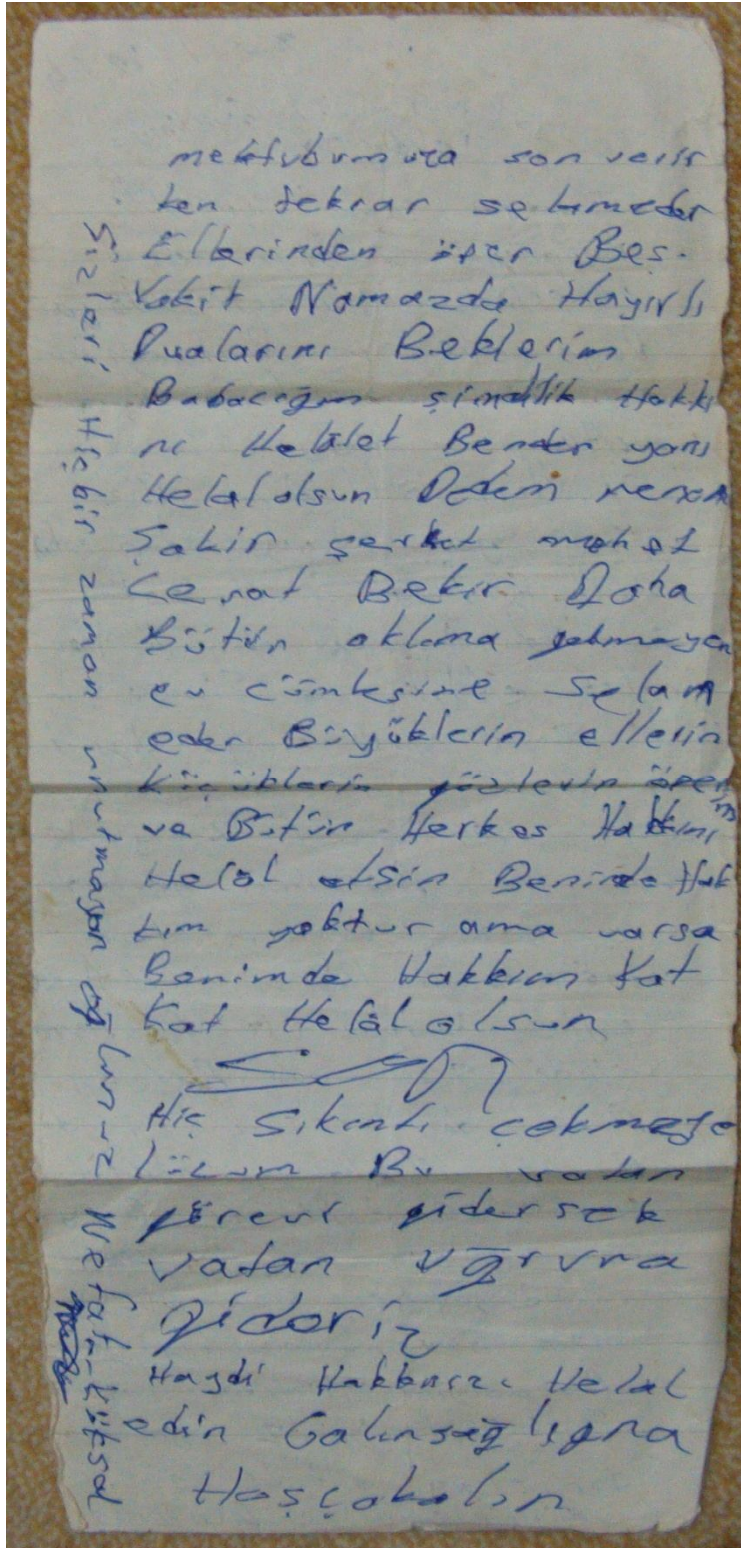 mektubumuza son verir
ken tekrar selameder
Ellerinden öper Beş.
Vakit Namazda Hayırlı
Dualarını Beklerim
Babacığım şimdilik Hakkı
nı Helalet Benden yana
Helal olsun Dedem nenem
Şakir şevket
Bekir Daha
Bütün aklıma gelmeyen
ev cümlesine Selam
eder Büyüklerin ellerin
küçüklerin gözlerin öperim
ve Bütün Herkes Hakkını
Helal etsin Beninde Hak
kım yoktur ama varsa
Benimde Hakkım Kat
Kat Helal olsun
Hiç Sıkıntı çekmeye
lüzum Bu vatan
görevi gidersek
vatan uğruna
gideriz
Haydi Hakkınızı Helal
edin Galınsağlığna
Hoşçakalın
Sizleri Hiçbir zaman unutmayan oğlunuz